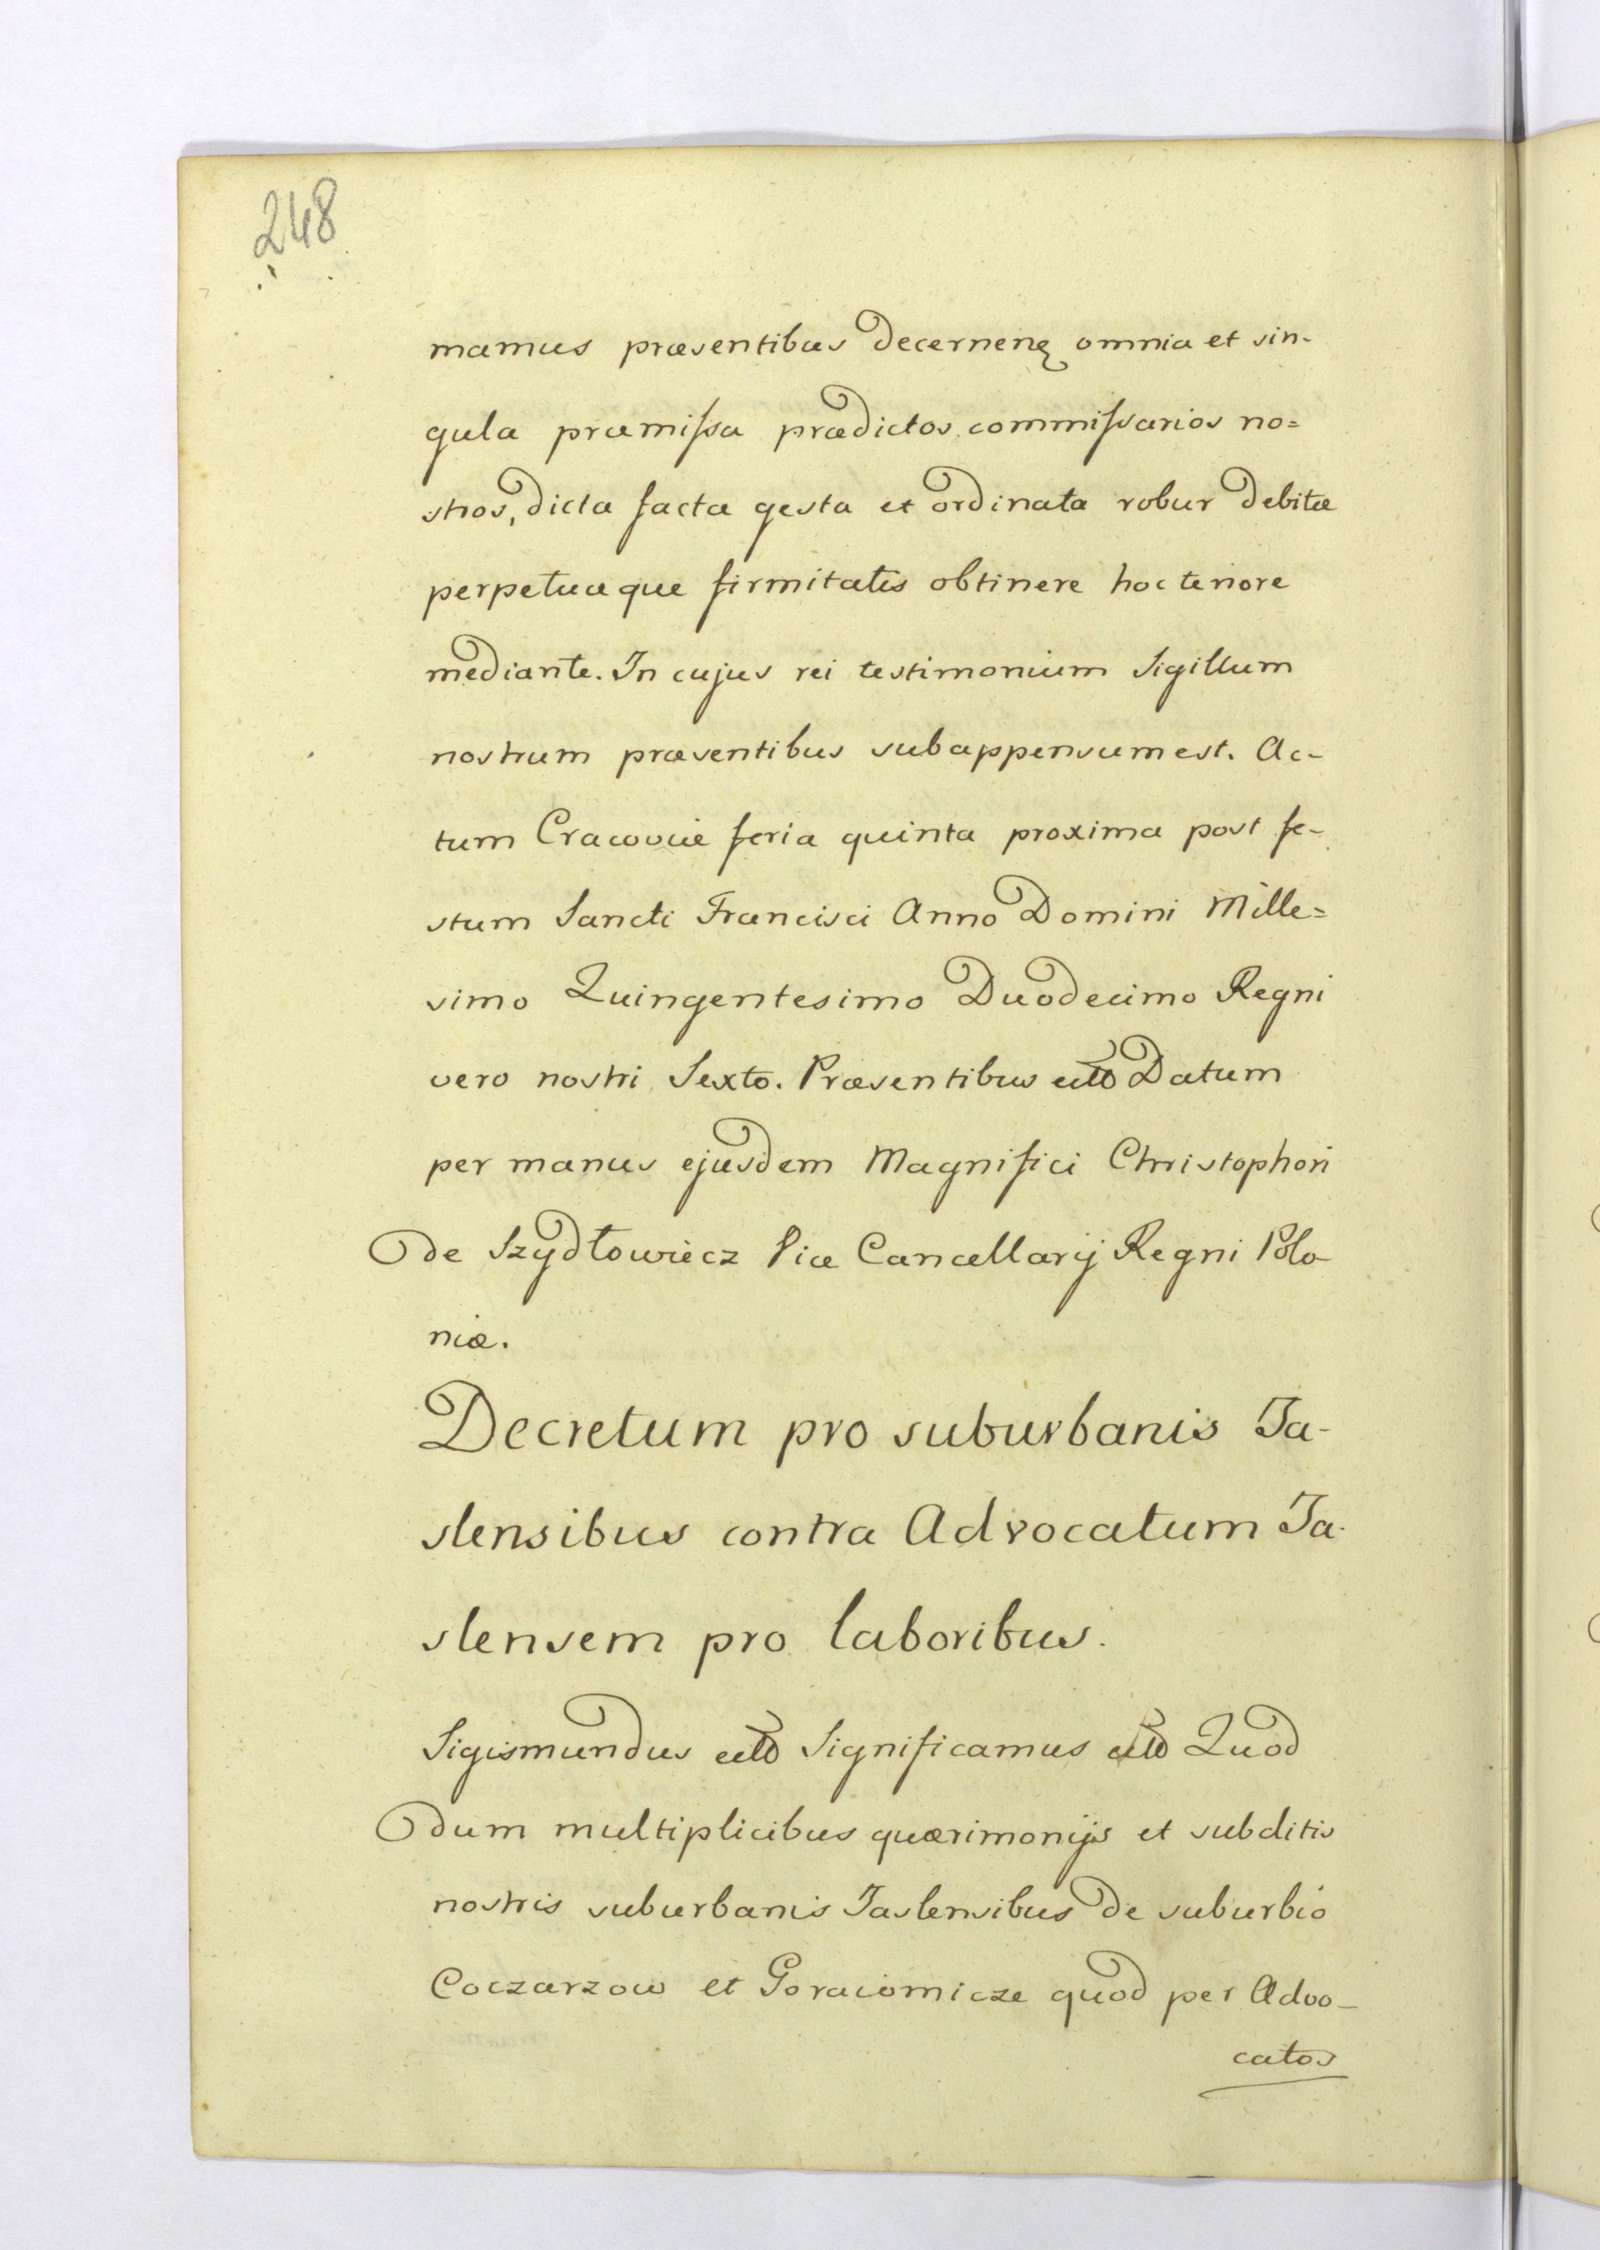 248
mamus præsentibus decernenꝗ omnia et sin-
gula præmissa prædictos commissarios no=
stros, dicta facta gesta et ordinata robur debitæ
perpetuæque firmitatis obtinere hoc tenore
mediante. In cujus rei testimonium Sigillum
nostrum præsentibus subappensum est. Ac-
tum Cracoviæ feria quinta proxima post fe-
stum Sancti Francisci Anno Domini Mille=
simo Quingentesimo Duodecimo Regni
vero nostri Sexto. Præsentibus Datum
per manus ejusdem Magnifici Christophori
de Szydłowiecz Vice Cancellarij Regni Polo
niæ.
Decretum pro suburbanis Ja-
slensibus contra Advocatum Ja-
slensem pro laboribus.
Sigismundus Significamus Quod
dum multiplicibus quærimonijs et subditis
nostris suburbanis Jaslensibus de suburbio
Coczarzow et Goraiomicze quod per Advo-
catos